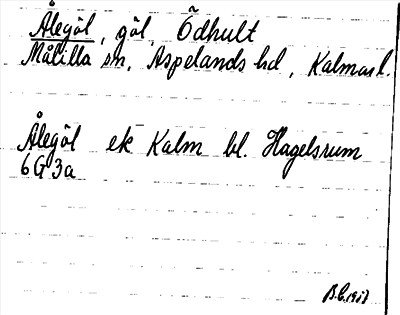 Ålegöl, göl, Ödhult
Målilla sn, Aspelands hd, Kalmar l.
Ålegöl ek Kalm bl. Hagelsrum
6G 3a